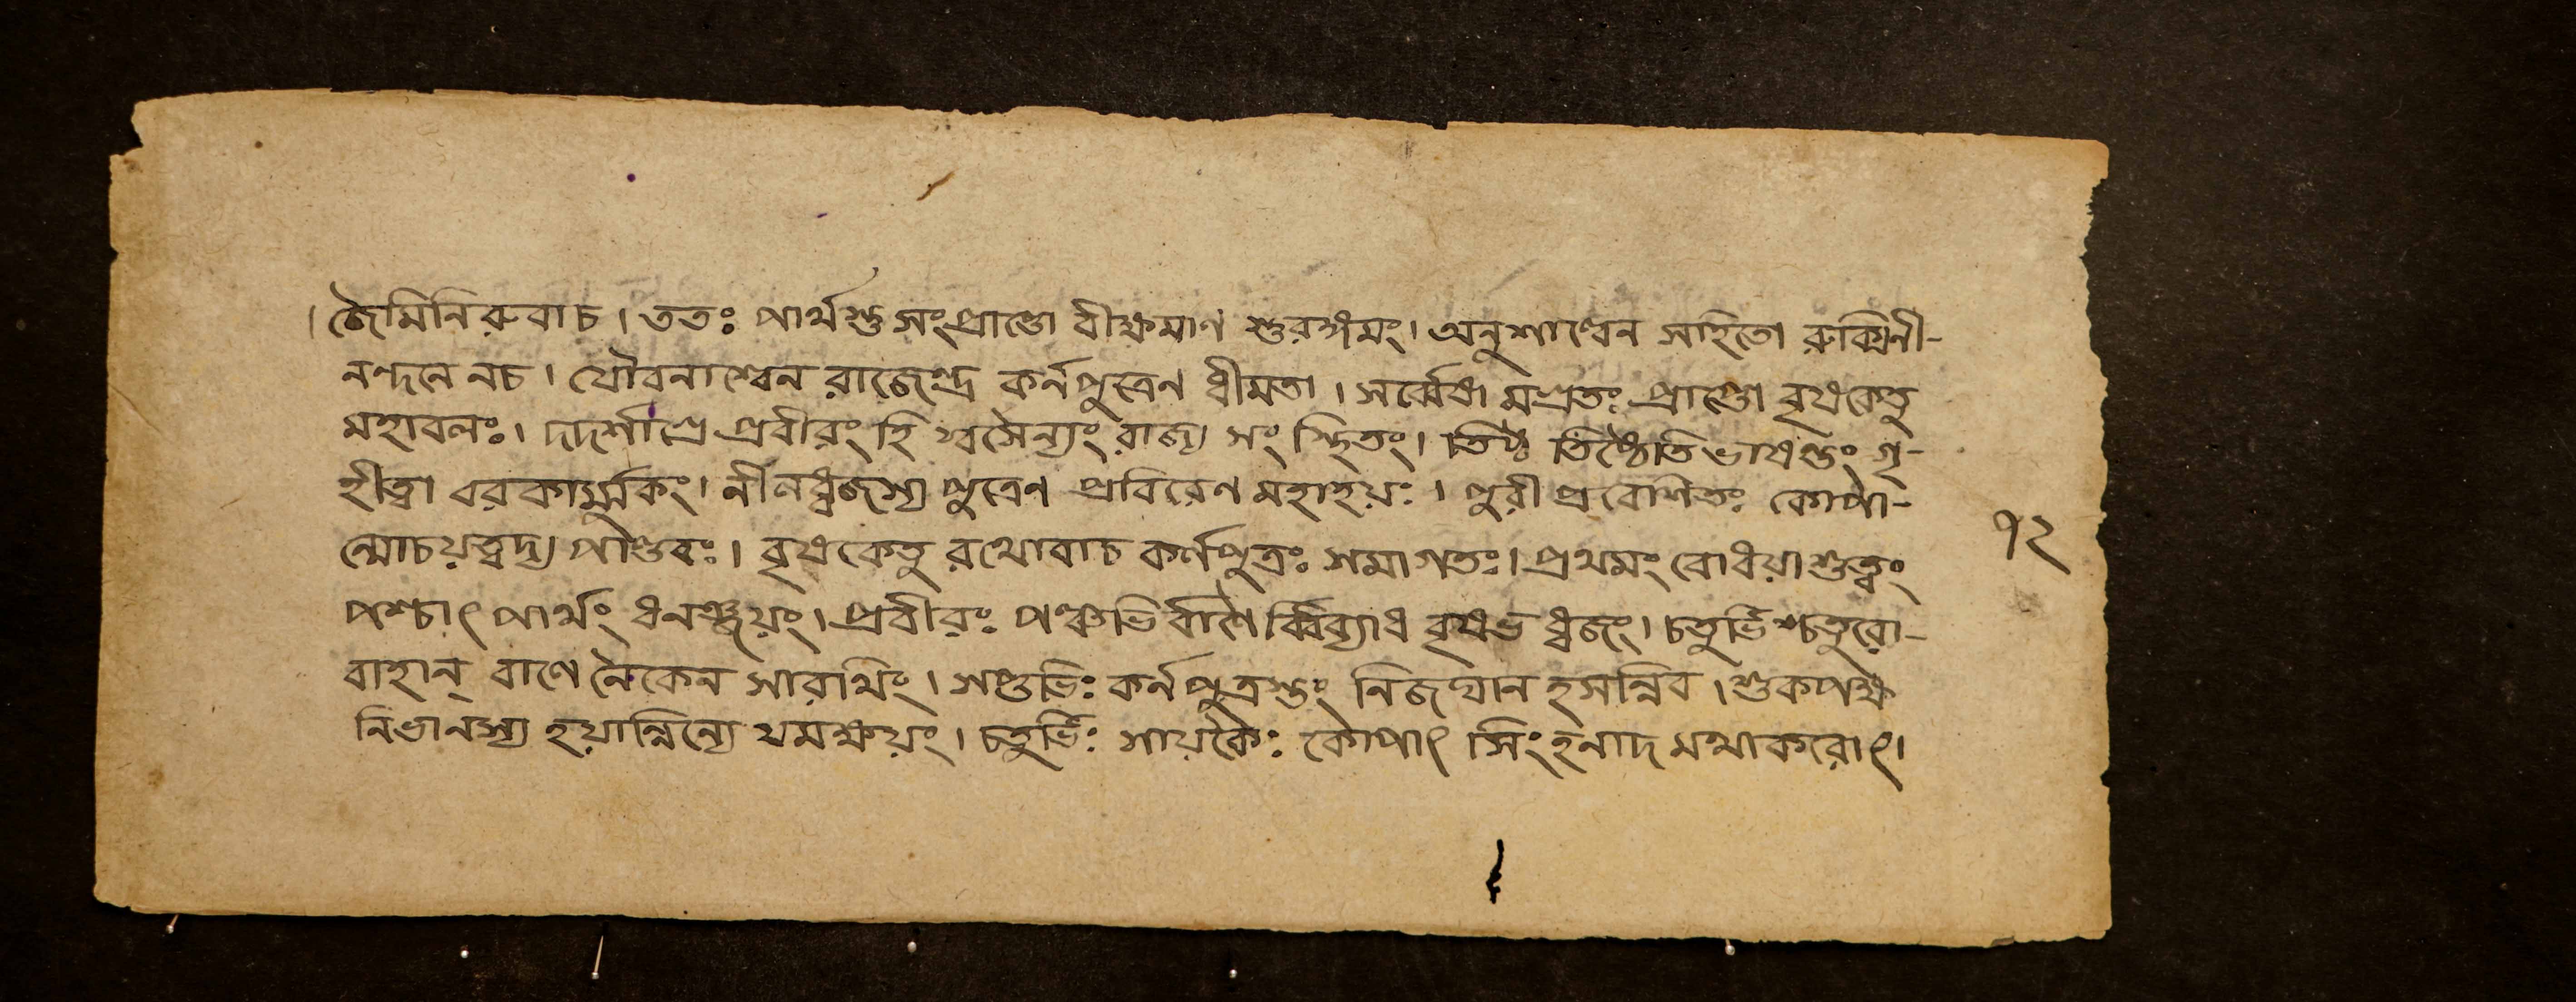 । জৈমিনিরুবাচ । ততঃ পার্থস্তু সংপ্রাপ্তো বীক্ষমাণ স্তুরঙ্গমং । অনুশাল্বেন সহিতো রুক্মিনী-
নন্দনে নচ । যৌবনাশ্বেন রাজেন্দ্র কর্নপুত্রেন ধীমতা । সর্ব্বেষা মগ্রতঃ প্রাপ্তো বৃষকেতু
মহাবলঃ । দদর্শাগ্রে প্রবীরং হি স্বসৈন্যং রাজ্য সংস্থিতং । তিষ্ঠ তিষ্ঠেতি ভাষন্তং গৃ-
হীত্বা বরকার্ম্মুকং । নীলধ্বজস্য পুত্রেণ প্রবিরেণ মহাহয়ঃ । পুরী প্রবেশিতঃ কোপা-
ন্মোচয়ত্বদ্য পাণ্ডবঃ । বৃষকেতু রথোবাচ কর্ণপুত্রঃ সমাগতঃ । প্রথমং বোধয়াশুত্বং
পশ্চাৎ পার্থং ধনঞ্জয়ং । প্রবীরঃ পঞ্চভি র্বাণৈ র্ব্বিব্যাধ বৃষভ ধ্বজং । চতুর্ভি শ্চতুরো-
বাহান্ বাণে নৈকেন সারথিং । সপ্তভিঃ কর্নপুত্রস্তং নিজঘান হসন্নিব । শুকপক্ষ
নিভানস্য হয়ান্নিন্যে যমক্ষয়ং । চতুর্ভিঃ সায়কৈঃ কোপাৎ সিংহনাদ মথাকরোৎ ।
৭২